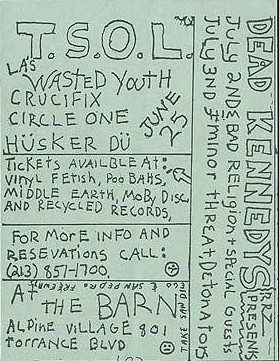 T.S.O.L.
LA's
WASTED YOUTH
CRUCIFIX
CIRCLE ONE
HÜSKER DÜ
JUNE
25
TICKETS AVAILBLE AT:
VINYL FETISH, POO BAHS,
MIDDLE EARTH, MOBY DISC,
AND RECYCLED RECORDS,
FOR MORE INFO AND
RESEVATIONS CALL:
(213) 857-1700.
At
THE BARN
ALPINE VILLAGE 801
TORRANCE BLVD
TAKE SAN DI
EGO & SAN PEDRO FREEWY
DEAD KENNEDYS
JULY 2ND & BAD RELIGION + SPECIAL GUESTS
JULY 3ND & MINOR THREAT, DETONATOR
PRESENTS